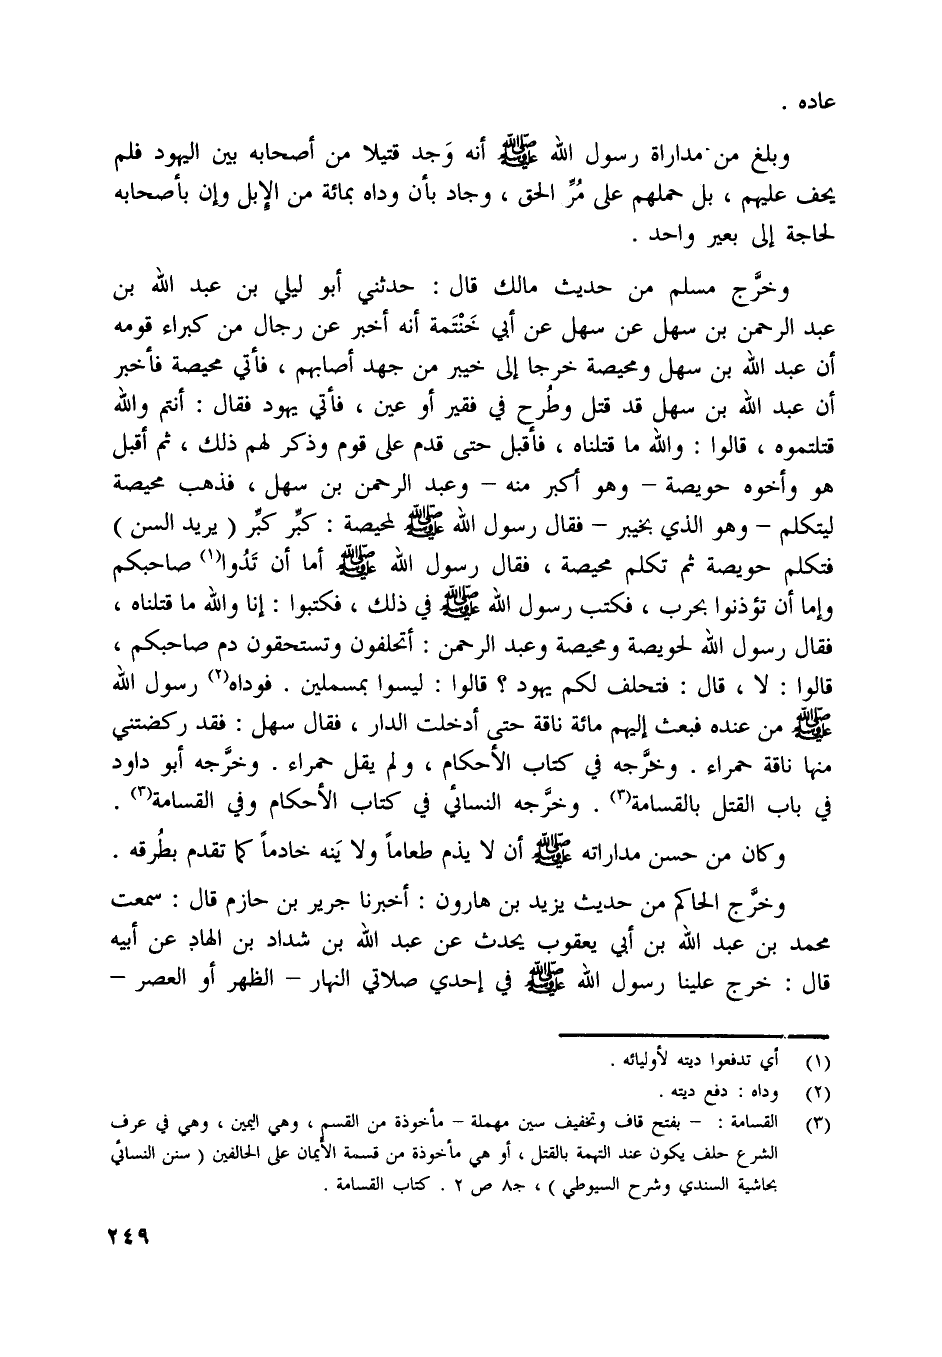 عاده .
وبلغ من مداراة رسول الله ﷺ أنه وَجد قتيلا من أصحابه بين اليهود فلم
يحف عليهم ، بل حملهم على مُرِّ الحق ، وجاد بأن وداه بمائة من الإبل وإن بأصحابه
لحاجة إلى بعير واحد .
وخرَّج مسلم من حديث مالك قال : حدثني أبو ليلي بن عبد الله بن
عبد الرحمن بن سهل عن سهل عن أبي خَنْتَمة أنه أخبر عن رجال من كبراء قومه
أن عبد الله بن سهل ومحيصة خرجا إلى خيبر من جهد أصابهم ، فأتي محيصة فأخبر
أن عبد الله بن سهل قد قتل وطُرح في فقير أو عين ، فأتي يهود فقال : أنتم والله
قتلتموه ، قالوا : والله ما قتلناه ، فأقبل حتى قدم على قوم وذكر لهم ذلك ، ثم أقبل
هو وأخوه حويصة – وهو أكبر منه – وعبد الرحمن بن سهل ، فذهب محيصة
ليتكلم – وهو الذي بخيبر – فقال رسول الله ﷺ لمحيصة : كبِّر كبِّر ( يريد السن )
فتكلم حويصة ثم تكلم محيصة ، فقال رسول الله ﷺ أما أن تَدُوا(١) صاحبكم
وإما أن تؤذنوا بحرب ، فكتب رسول الله ﷺ في ذلك ، فكتبوا : إنا والله ما قتلناه ،
فقال رسول الله لحويصة ومحيصة وعبد الرحمن : أتحلفون وتستحقون دم صاحبكم ،
قالوا : لا ، قال : فتحلف لكم يهود ؟ قالوا : ليسوا بمسملين . فوداه(٢) رسول الله
ﷺ من عنده فبعث إليهم مائة ناقة حتى أدخلت الدار ، فقال سهل : فقد ركضتني
منها ناقة حمراء . وخرَّجه في كتاب الأحكام ، ولم يقل حمراء . وخرَّجه أبو داود
في باب القتل بالقسامة(٣) . وخرَّجه النسائي في كتاب الأحكام وفي القسامة(٣) .
وكان من حسن مداراته ﷺ أن لا يذم طعاماً ولا يَنه خادماً كما تقدم بطُرقه .
وخرَّج الحاكم من حديث يزيد بن هارون : أخبرنا جرير بن حازم قال : سمعت
محمد بن عبد الله بن أبي يعقوب يحدث عن عبد الله بن شداد بن الهادِ عن أبيه
قال : خرج علينا رسول الله ﷺ في إحدي صلاتي النهار – الظهر أو العصر –
(١) أي تدفعوا ديته لأوليائه .
(٢) وداه : دفع ديته .
(٣) القسامة : – بفتح قاف وتخفيف سين مهملة – مأخوذة من القسم ، وهي اليمين ، وهي في عرف
الشرع حلف يكون عند التهمة بالقتل ، أو هي مأخوذة من قسمة الأيمان على الحالفين ( سنن النسائي
بحاشية السندي وشرح السيوطي ) ، جـ٨ ص ٢ . كتاب القسامة .
٢٤٩